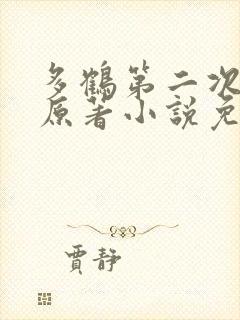 多鶴第二次
原著小說免
賈靜